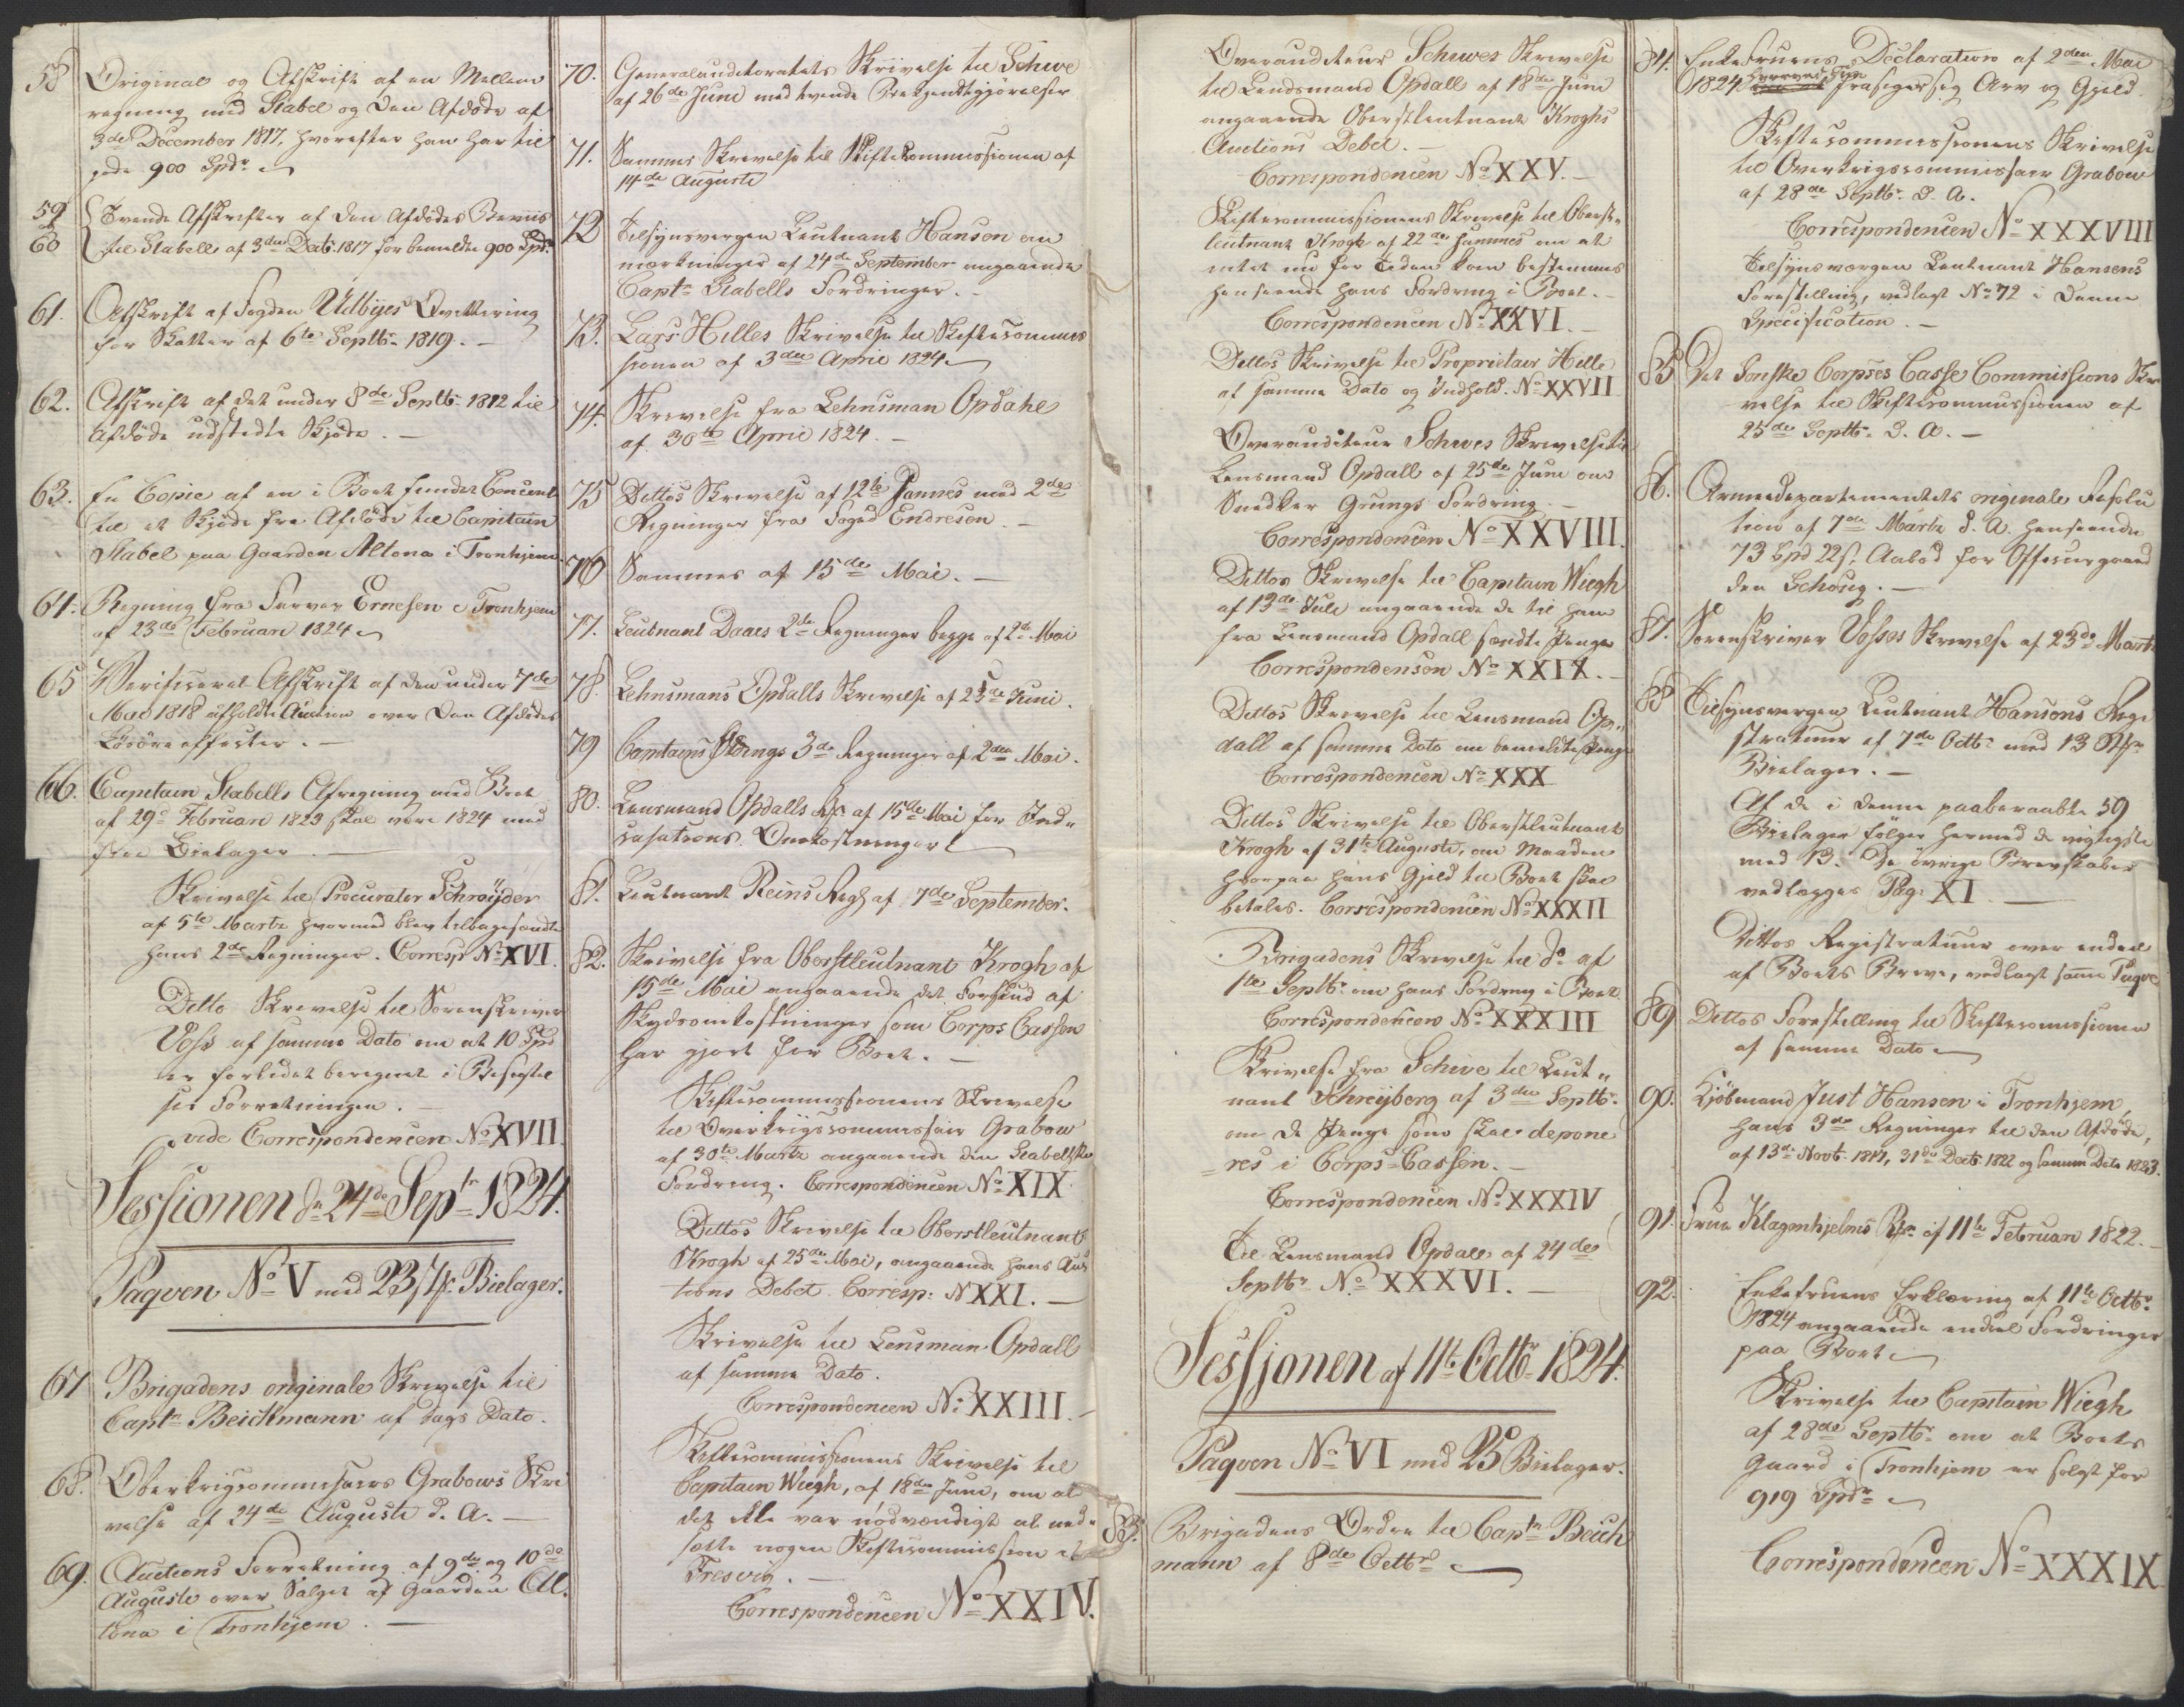 58 Original og Afskrift af en Mellem
regning med Stabel og den Afdøde af
3de December 1817, hvorefter han har til
gode 900 Spdr
59 Tvende Afskrifter af den Afdødes Beviis
60 til Stabell af 3die Decbr 1817 for bemeldte 900 Spdr
61. Afskrift af Fogden Udbyes Qvittering
for Skatter af 6te Septbr 1819.
62. Afskrift af det under 8de Septbr 1812 til
Afdøde udstedte Skjøde.
63. En Copie af en i Boet funden Concept
til et Skjøde fra Afdøde til Capitain
Stabel paa Gaarden Altona i Tronhjem
64. Regning fra Farver Ernesen i Tronhjem
af 23de Februari 1824
65 Verificeret Afskrift af den under 7de
Mai 1818 afholdte Auction over den Afdødes
Løsøreeffecter.
66. Capitain Stabells Afregning med Boet
af 29de Februari 1823 skal være 1824 med
fire Bielager
Skrivelse til Procurator Schrøyder
af 5te Marts hvormed blev tilbagesendte
hans 2de Regninger. Corresp. No XVI.
Ditto Skrivelse til Sorenskriver
Voss af samme Dato om at 10 Spd
er forlidet beregnet i Beseglel
ses Forretningen.
vide Correspondencen No XVII.
Sessionen de 24de Septr 1824.
Paqven No V med 23 Bielager.
67 Brigadens originale Skrivelse til
Captn Beichmann af dags Dato.
68. Oberkrigscommissairs Grabows Skri
velse af 24de Auguste d. A.
69. Auctions Forretning af 9de og 10de
Auguste over Salget af Gaarden Al,
tona i Tronhjem.
70. Generalauditoratets Skrivelse til Schive
af 26de Juni med tvende
71. Sammes Skrivelse til Skiftekommissionen af
14de Auguste
72 Tilsynsvergen Leutnant Hanson an
mærkninger af 24de September angaaende
Captn Stabells Fordringer.
73. Lars Hilles Skrivelse til Skiftecommis
sionen af 3die April 1824
74. Skrivelse fra Lehnsman Opdahl
af 30te April 1824.
75 Dittos Skrivelse af 12te Sammes med 2de
Regninger fra Foged Endresen.
76 Sammes af 15de Mai.
77. Leutnant Daaes 2de Regninger begge af 2de Mai
78. Lehnsmans Opdalls Skrivelse af 25de Juni.
79 Capitains 3de Regninger af 2den Mai.
80. Lensmand Opdalls Rg af 15de Mai for Ind„
cassations Omkostninger
81. Leutnant Reins Regg af 7de September.
82. Skrivelse fra Oberstleutnant Krogh af
15de Mai angaaende det Forskud af
Skydsomkostninger som Corps Cassen
har gjort for Boet.
Skiftecommissionens Skrivelse
til Overkrigscommissair Grabow
af 30te Marts angaaende den Stabellske
Fordring. Correspondencen No XIX.
Dittos Skrivelse til Oberstleutnant
Krogh af 25de Mai, angaaende hans Auc
tions Debet. Corresp: No XXI.
Skrivelse til Lensman Opdall
af samme Dato.
Correspondencen No XXIII.
Skiftecommissionens Skrivelse til
Capitain Wiegh, af 18de Juni, om at
det ikke var nødvændigt at ned„
sætte nogen Skiftecommission i
Fresvig.
Correspondencen No XXIV.
Overauditeur Schives Skrivelse
til Lendsmand Opdall af 18de Juni
angaaende Oberstleutnant Kroghs
Auctions Debet.
Correspondencen No XXV.
Skiftecommissionens Skrivelse til Oberst„
leutnant Krogh af 22de Sammes om at
intet nu for Tiden kan bestemmes
henseende hans Fordring i Boet.
Correspondencen No XXVI.
Dittos Skrivelse til Proprietair Hille
af samme Dato og Indhold. No XXVII
Overauditeur Schives Skrivelse til
Lensmand Opdall af 25de Juni om
Snedker Grungs Fordring
Correspondencen No XXVIII.
Dittos Skrivelse til Capitain Wiegh
af 13de Juli angaaende de til ham
fra Lensmand Opdall sendte Penge
Correspondensen No XXIX.
Dittos Skrivelse til Lensmand Op„
dall af samme Dato om bemeldte Penge
Correspondencen No XXX
Dittos Skrivelse til Oberstleutnant
Krogh af 31te Auguste, om Maaden
hvorpaa hans Gjeld til Boet skal
betales. Correspondencen No XXXII
Brigadens Skrivelse til do af
1te Septbr om hans Fordring i Boet.
Correspondencen No XXXIII
Skrivelse fra Schive til Leut„
nant Schreyberg af 3die Septbr.
om de Penge som skal depone
res i Corps-Cassen.
Correspondencen No XXXIV
Til Lensmand Opdall af 24de
Septbr No XXXVI.
Sessjonen af 11te Octbr 1824.
Paqven No VI med 25 Bielager.
83. Brigadens Ordre til Captn Beich
mann af 8de Octbr
84. Enkefruens Declaration af 2den Mai
1824 hvorved hun frasiger sig Arv og Gjeld.
Skiftecommissionens Skrivelse
til Overkrigscommissair Grabow
af 28de Septbr d. A.
Correspondencen No XXXVIII
Tilsynsvergen Leutnant Hansens
Forestilling, vedlagt No 72 i denne
Specification.
85 Det Corpses Casse Commissions Skri
velse til Skiftecommissionen af
25de Septbr d. A.
86. Armeedepartementets originale Resolu
tion af 7de Marts d. A. henseende
73 Spd 22 s. Aabod for Officeergaard
den Schøug.
87. Sorenskriver Vosses Skrivelse af 23de Marts
88 Tilsynsvergen Leutnant Hansons Regi
stratuur af 7de Octbr med 13
Bielager.
Af de i denne paaberaabte 59
Bielager følger hermed de vigtigste
med 13. De øvrige Brevskaber
vedlægges Pag. XI.
Dittos Registratuur over endeel
af Boets Breve, vedlagt samme Paqve
89 Dittos Forestilling til Skiftecommissionen
af samme Dato
90. Kjøbmand Just Hansen i Tronhjem,
hans 3de Regninger til den Afdøde,
af 13de Novbr 1817, 31de Decbr 1822 og samme Dato 1823.
91. Frue Klagenhjelms af 11te Februari 1822.
92. Enkefruens Erklæring af 11te Octbr
1824 angaaende endeel Fordringer
paa Boet
Skrivelse til Capitain Wiegh
af 28de Septbr om at Boets
Gaard i Tronhjem er solgt for
919 Spdr
Correspondencen No XXXIX